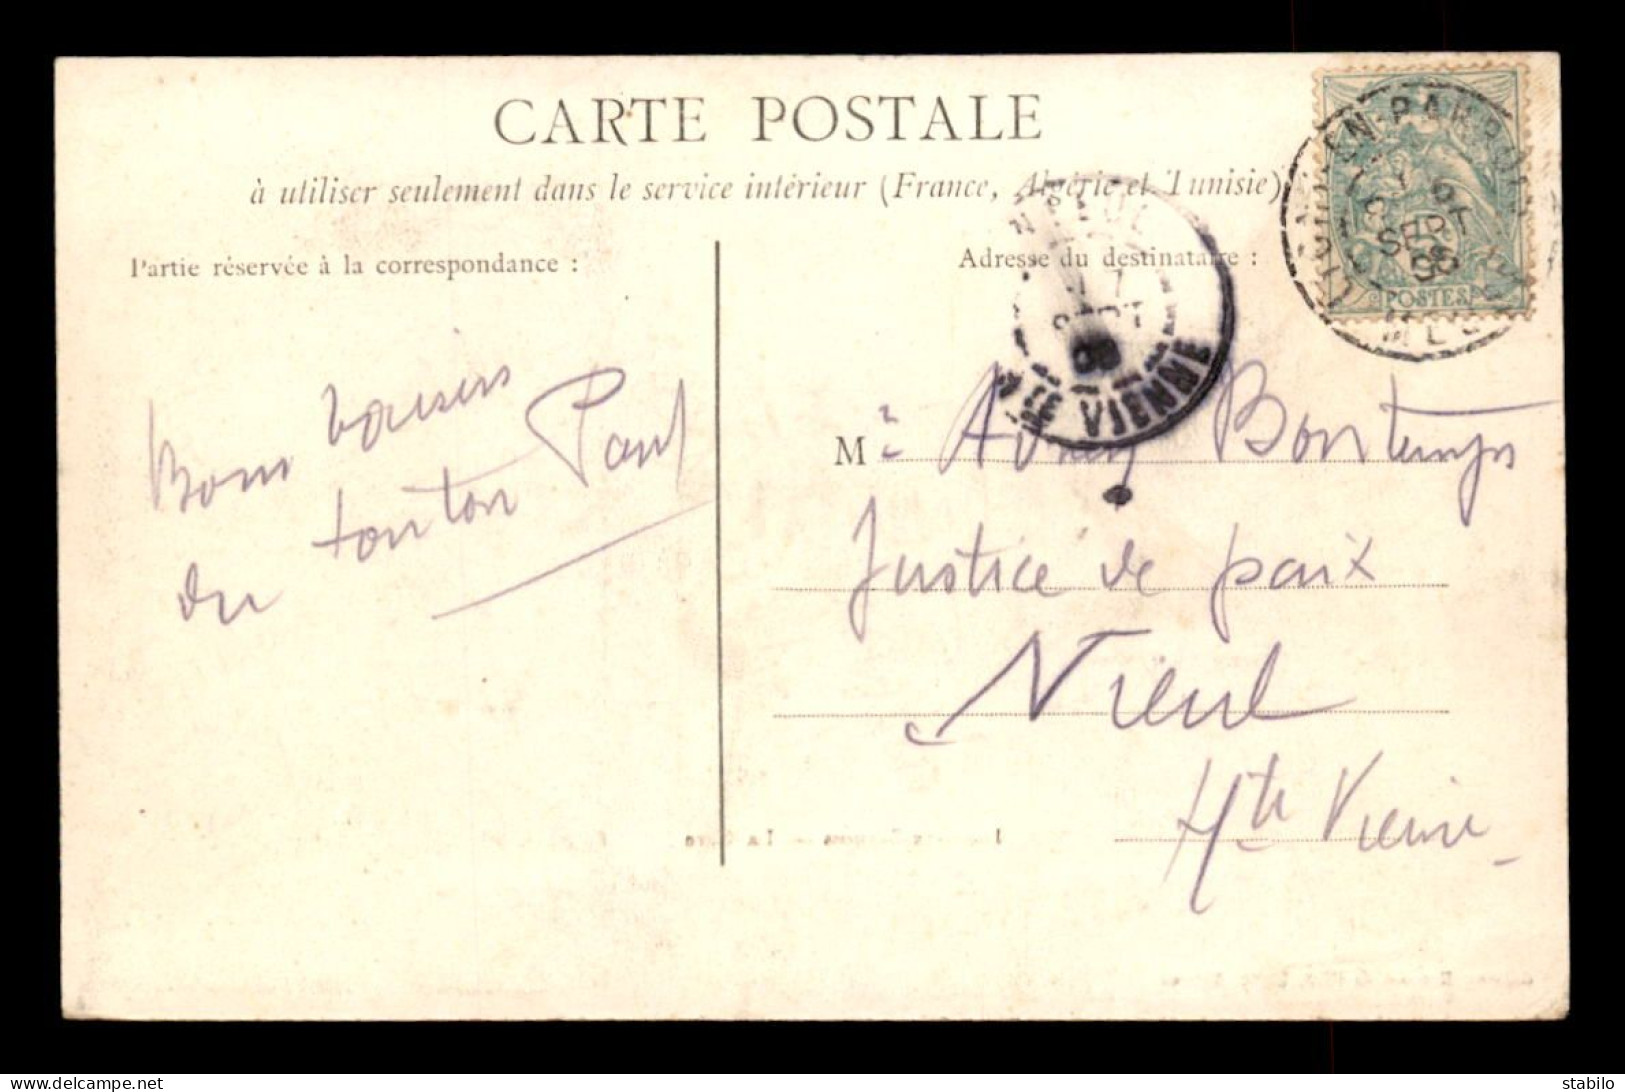 CARTE POSTALE
à utiliser seulement dans le service intérieur (France, Algérie et Tunisie)
Partie réservée à la correspondance :
Adresse du destinataire :
Bons baisers
du tonton Paul
M à Bontemps
Justice de paix
Nieul
Hte Vienne
POSTES
SEPT
7
SEPT
VIENNE
stabilo